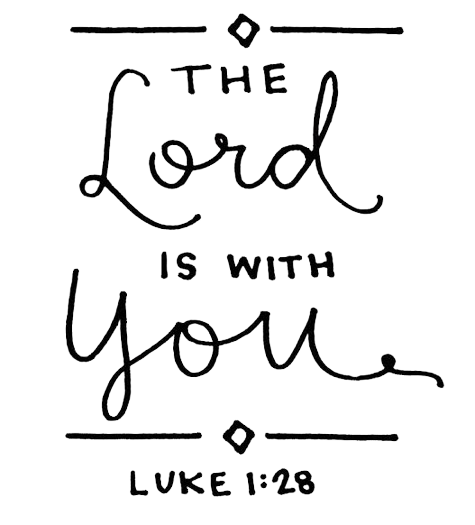 THE
Lord
IS WITH
You
LUKE 1:28